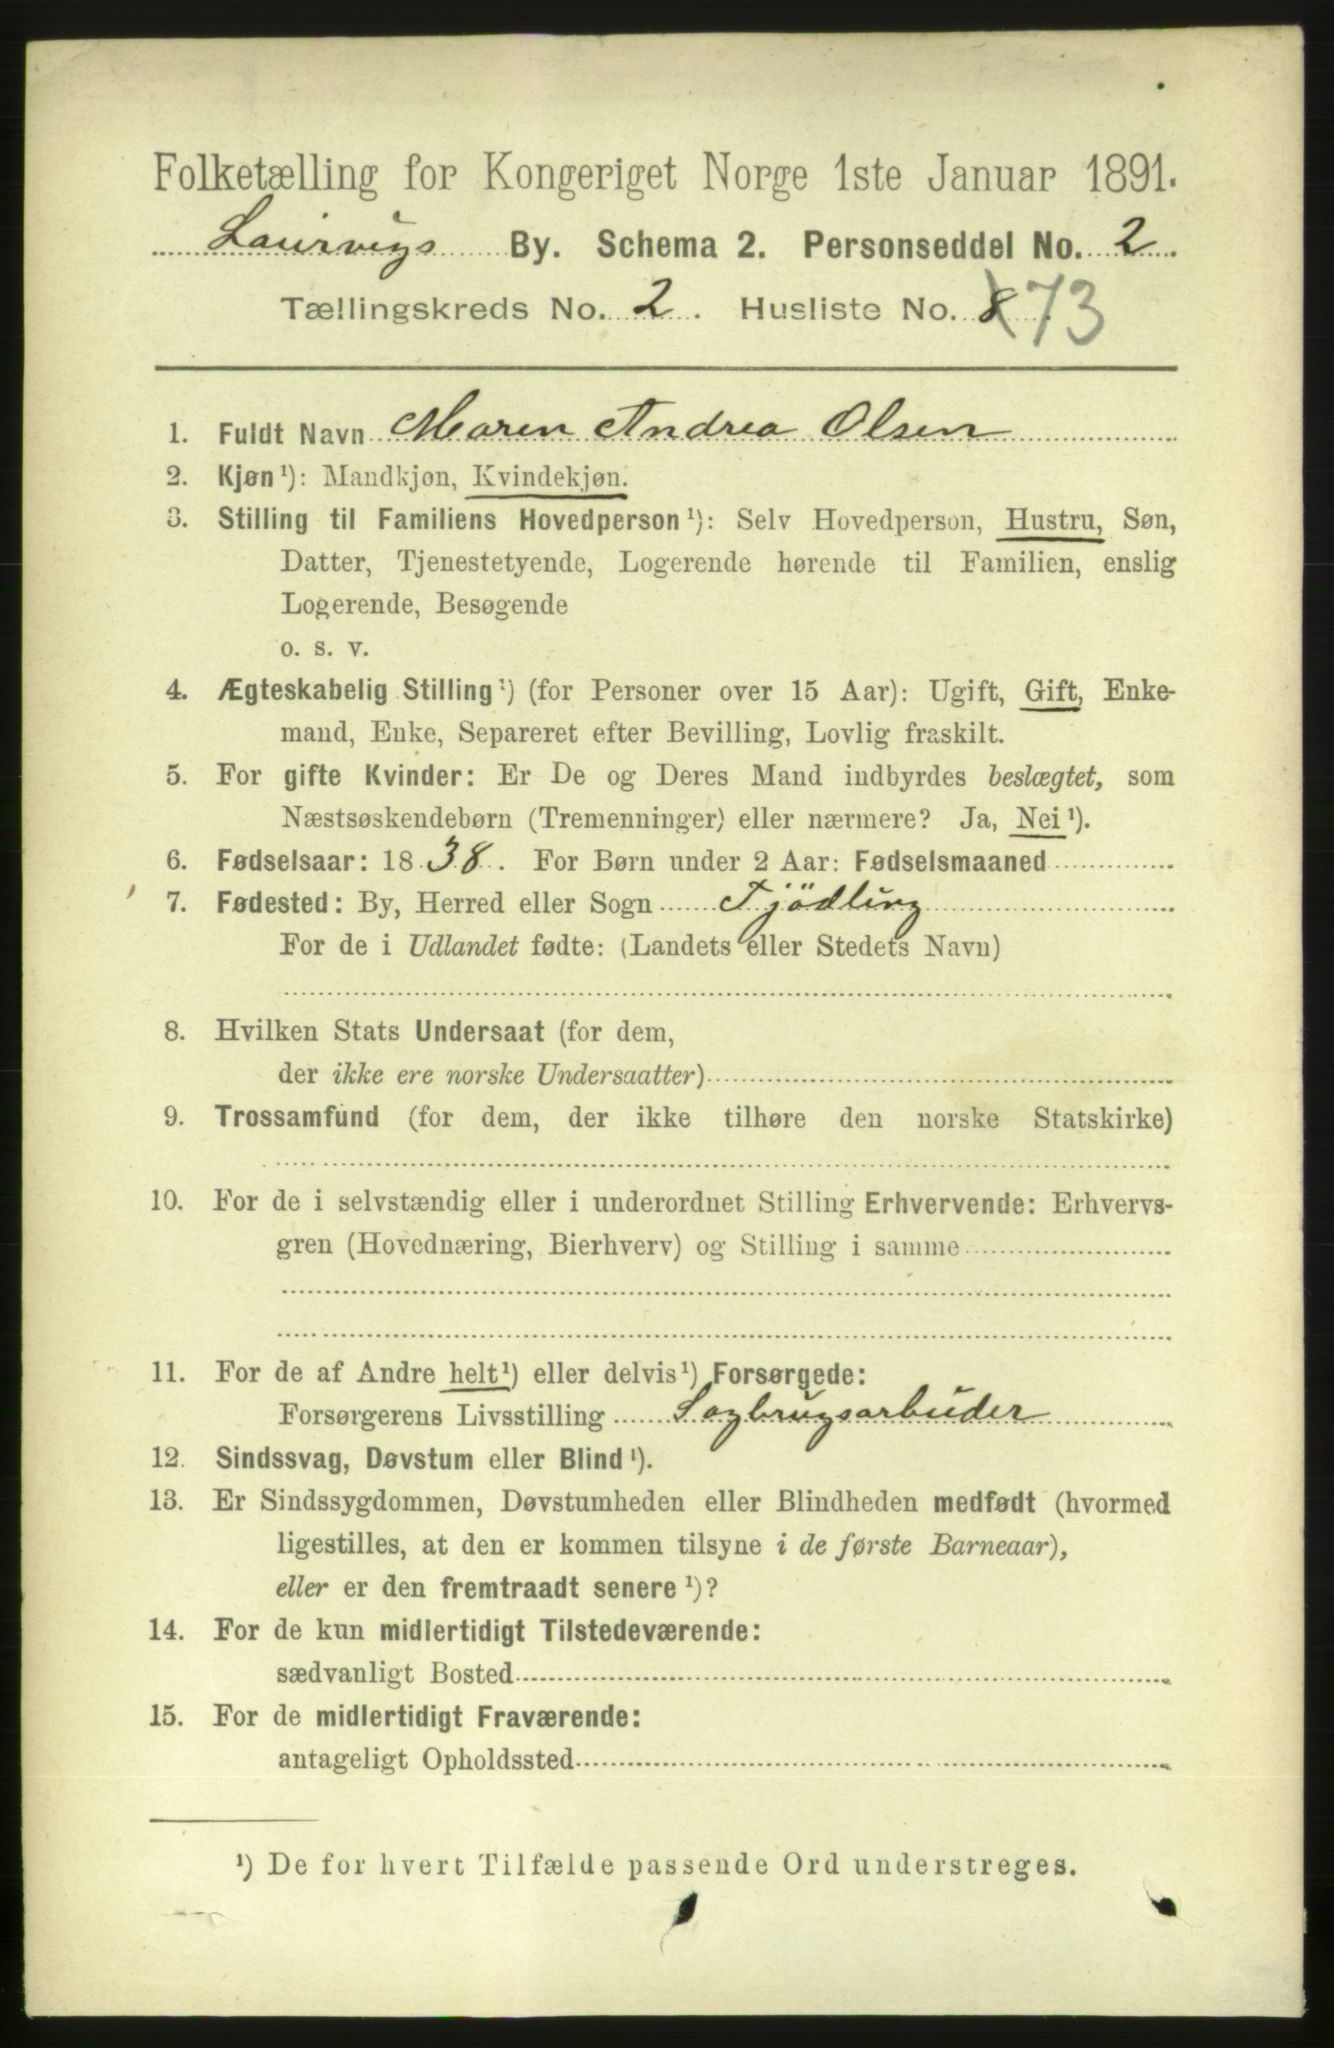 Folketælling for Kongeriget Norge 1ste Januar 1891.
Laurvigs By. Schema 2. Personseddel No. 2.
Tællingskreds No. 2. Husliste No. 8 73
1. Fuldt Navn Maren Andrea Olsen
2. Kjøn ¹): Mandkjøn, Kvindekjøn.
3. Stilling til Familiens Hovedperson ¹): Selv Hovedperson, Hustru, Søn,
Datter, Tjenestetyende, Logerende hørende til Familien, enslig
Logerende, Besøgende
o. s. v.
4. Ægteskabelig Stilling ¹) (for Personer over 15 Aar): Ugift, Gift, Enke-
mand, Enke, Separeret efter Bevilling, Lovlig fraskilt.
5. For gifte Kvinder: Er De og Deres Mand indbyrdes beslægtet, som
Næstsøskendebørn (Tremenninger) eller nærmere? Ja, Nei ¹).
6. Fødselsaar: 1838. For Børn under 2 Aar: Fødselsmaaned
7. Fødested: By, Herred eller Sogn Tjödling
For de i Udlandet fødte: (Landets eller Stedets Navn)
8. Hvilken Stats Undersaat (for dem,
der ikke ere norske Undersaatter)
9. Trossamfund (for dem, der ikke tilhøre den norske Statskirke)
10. For de i selvstændig eller i underordnet Stilling Erhvervende: Erhvervs-
gren (Hovednæring, Bierhverv) og Stilling i samme
11. For de af Andre helt ¹) eller delvis ¹) Forsørgede:
Forsørgerens Livsstilling Sagbrugsarbuder
12. Sindssvag, Døvstum eller Blind ¹).
13. Er Sindssygdommen, Døvstumheden eller Blindheden medfødt (hvormed
ligestilles, at den er kommen tilsyne i de første Barneaar),
eller er den fremtraadt senere ¹)?
14. For de kun midlertidigt Tilstedeværende:
sædvanligt Bosted
15. For de midlertidigt Fraværende:
antageligt Opholdssted
¹) De for hvert Tilfælde passende Ord understreges.